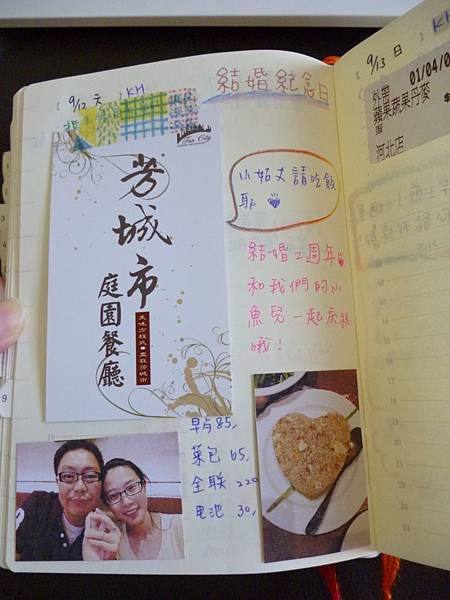 9/12 天
KH
結婚紀念日
Fun City
芳城市
庭園餐廳
美味方程式●盡在芳城市
小姑丈請吃飯
耶
結婚2周年
和我們的小
魚兒一起慶祝
哦！
早点85,
菜包 65,
全联 220
电池 30,
9/13 日
KH
01/04/0
外帶
蘋果蔬果丹麥
$
河北店
9